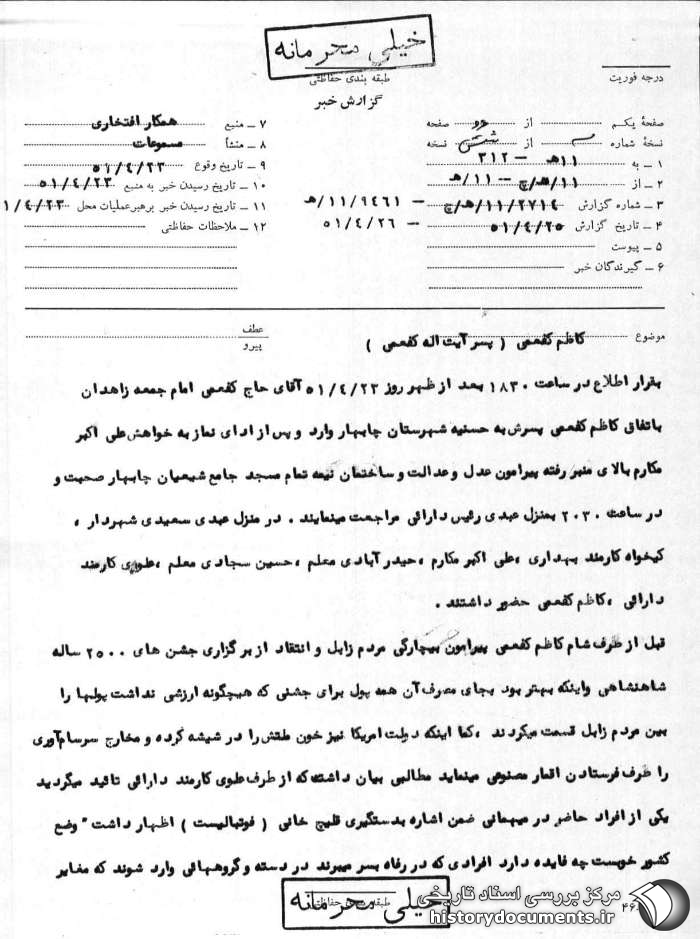 خیلی محرمانه
طبقه بندی حفاظتی
درجه فوریت
گزارش خبر
صفحهٔ یکم از دو صفحه
نسخهٔ شماره از شش نسخه
۱ ــ به ۱۱هـ - ۳۱۲
۲ ــ از ۱۱/هـ/چ - ۱۱/هـ
۳ ــ شماره گزارش ۱۱/۲۷۱۴/هـ/چ - ۱۱/۹۴۶۱/هـ
۴ ــ تاریخ گزارش ۵۱/۴/۲۵ - ۵۱/۴/۲۶
۵ ــ پیوست
۶ ــ گیرندگان خبر
۷ ــ منبع همکار افتخاری
۸ ــ منشأ مسموعات
۹ ــ تاریخ وقوع ۵۱/۴/۲۳
۱۰ ــ تاریخ رسیدن خبر به منبع ۵۱/۴/۲۳
۱۱ ــ تاریخ رسیدن خبر برهبر عملیات محل ۵۱/۴/۲۳
۱۲ ــ ملاحظات حفاظتی
موضوع کاظم کفعمی ( پسر آیت اله کفعمی )
عطف
پیرو
بقرار اطلاع در ساعت ۱۸۳۰ بعد از ظهر روز ۵۱/۴/۲۳ آقای حاج کفعمی امام جمعه زاهدان
باتفاق کاظم کفعمی پسرش به حسنیه شهرستان چابهار وارد و پس از ادای نماز به خواهش علی اکبر
مکارم بالای منبر رفته پیرامون عدل و عدالت و ساختمان نیمه تمام مسجد جامع شیعیان چابهار صحبت و
در ساعت ۲۰۳۰ بمنزل عبدی رئیس دارائی مراجعت مینمایند . در منزل عبدی سعیدی شهردار ،
کیخواه کارمند بهداری ،علی اکبر مکارم ،حیدرآبادی معلم ،حسین سجادی معلم ،علوی کارمند
دارائی ،کاظم کفعمی حضور داشتند .
قبل از طرف شام کاظم کفعمی پیرامون بیچارگی مردم زابل و انتقاد از برگزاری جشن های ۲۵۰۰ ساله
شاهنشاهی و اینکه بهتر بود بجای مصرف آن همه پول برای جشنی که هیچگونه ارزشی نداشت پولها را
بین مردم زابل قسمت میکردند ،کما اینکه دولت امریکا نیز خون ملتش را در شیشه کرده و مخارج سرسام آوری
را ظرف فرستادن اقمار مصنوعی مینماید مطالبی بیان داشته که از طرف علوی کارمند دارائی تائید میگردید
یکی از افراد حاضر در میهمانی ضمن اشاره بدستگیری قلیچ خانی ( فوتبالیست ) اظهار داشت " وضع
کشور خوبست چه فایده دارد افرادی که در رفاه بسر میبرند در دسته و گروههائی وارد شوند که مغایر
طبقه بندی حفاظتی
خیلی محرمانه
مرکز بررسی اسناد تاریخی
historydocuments.ir